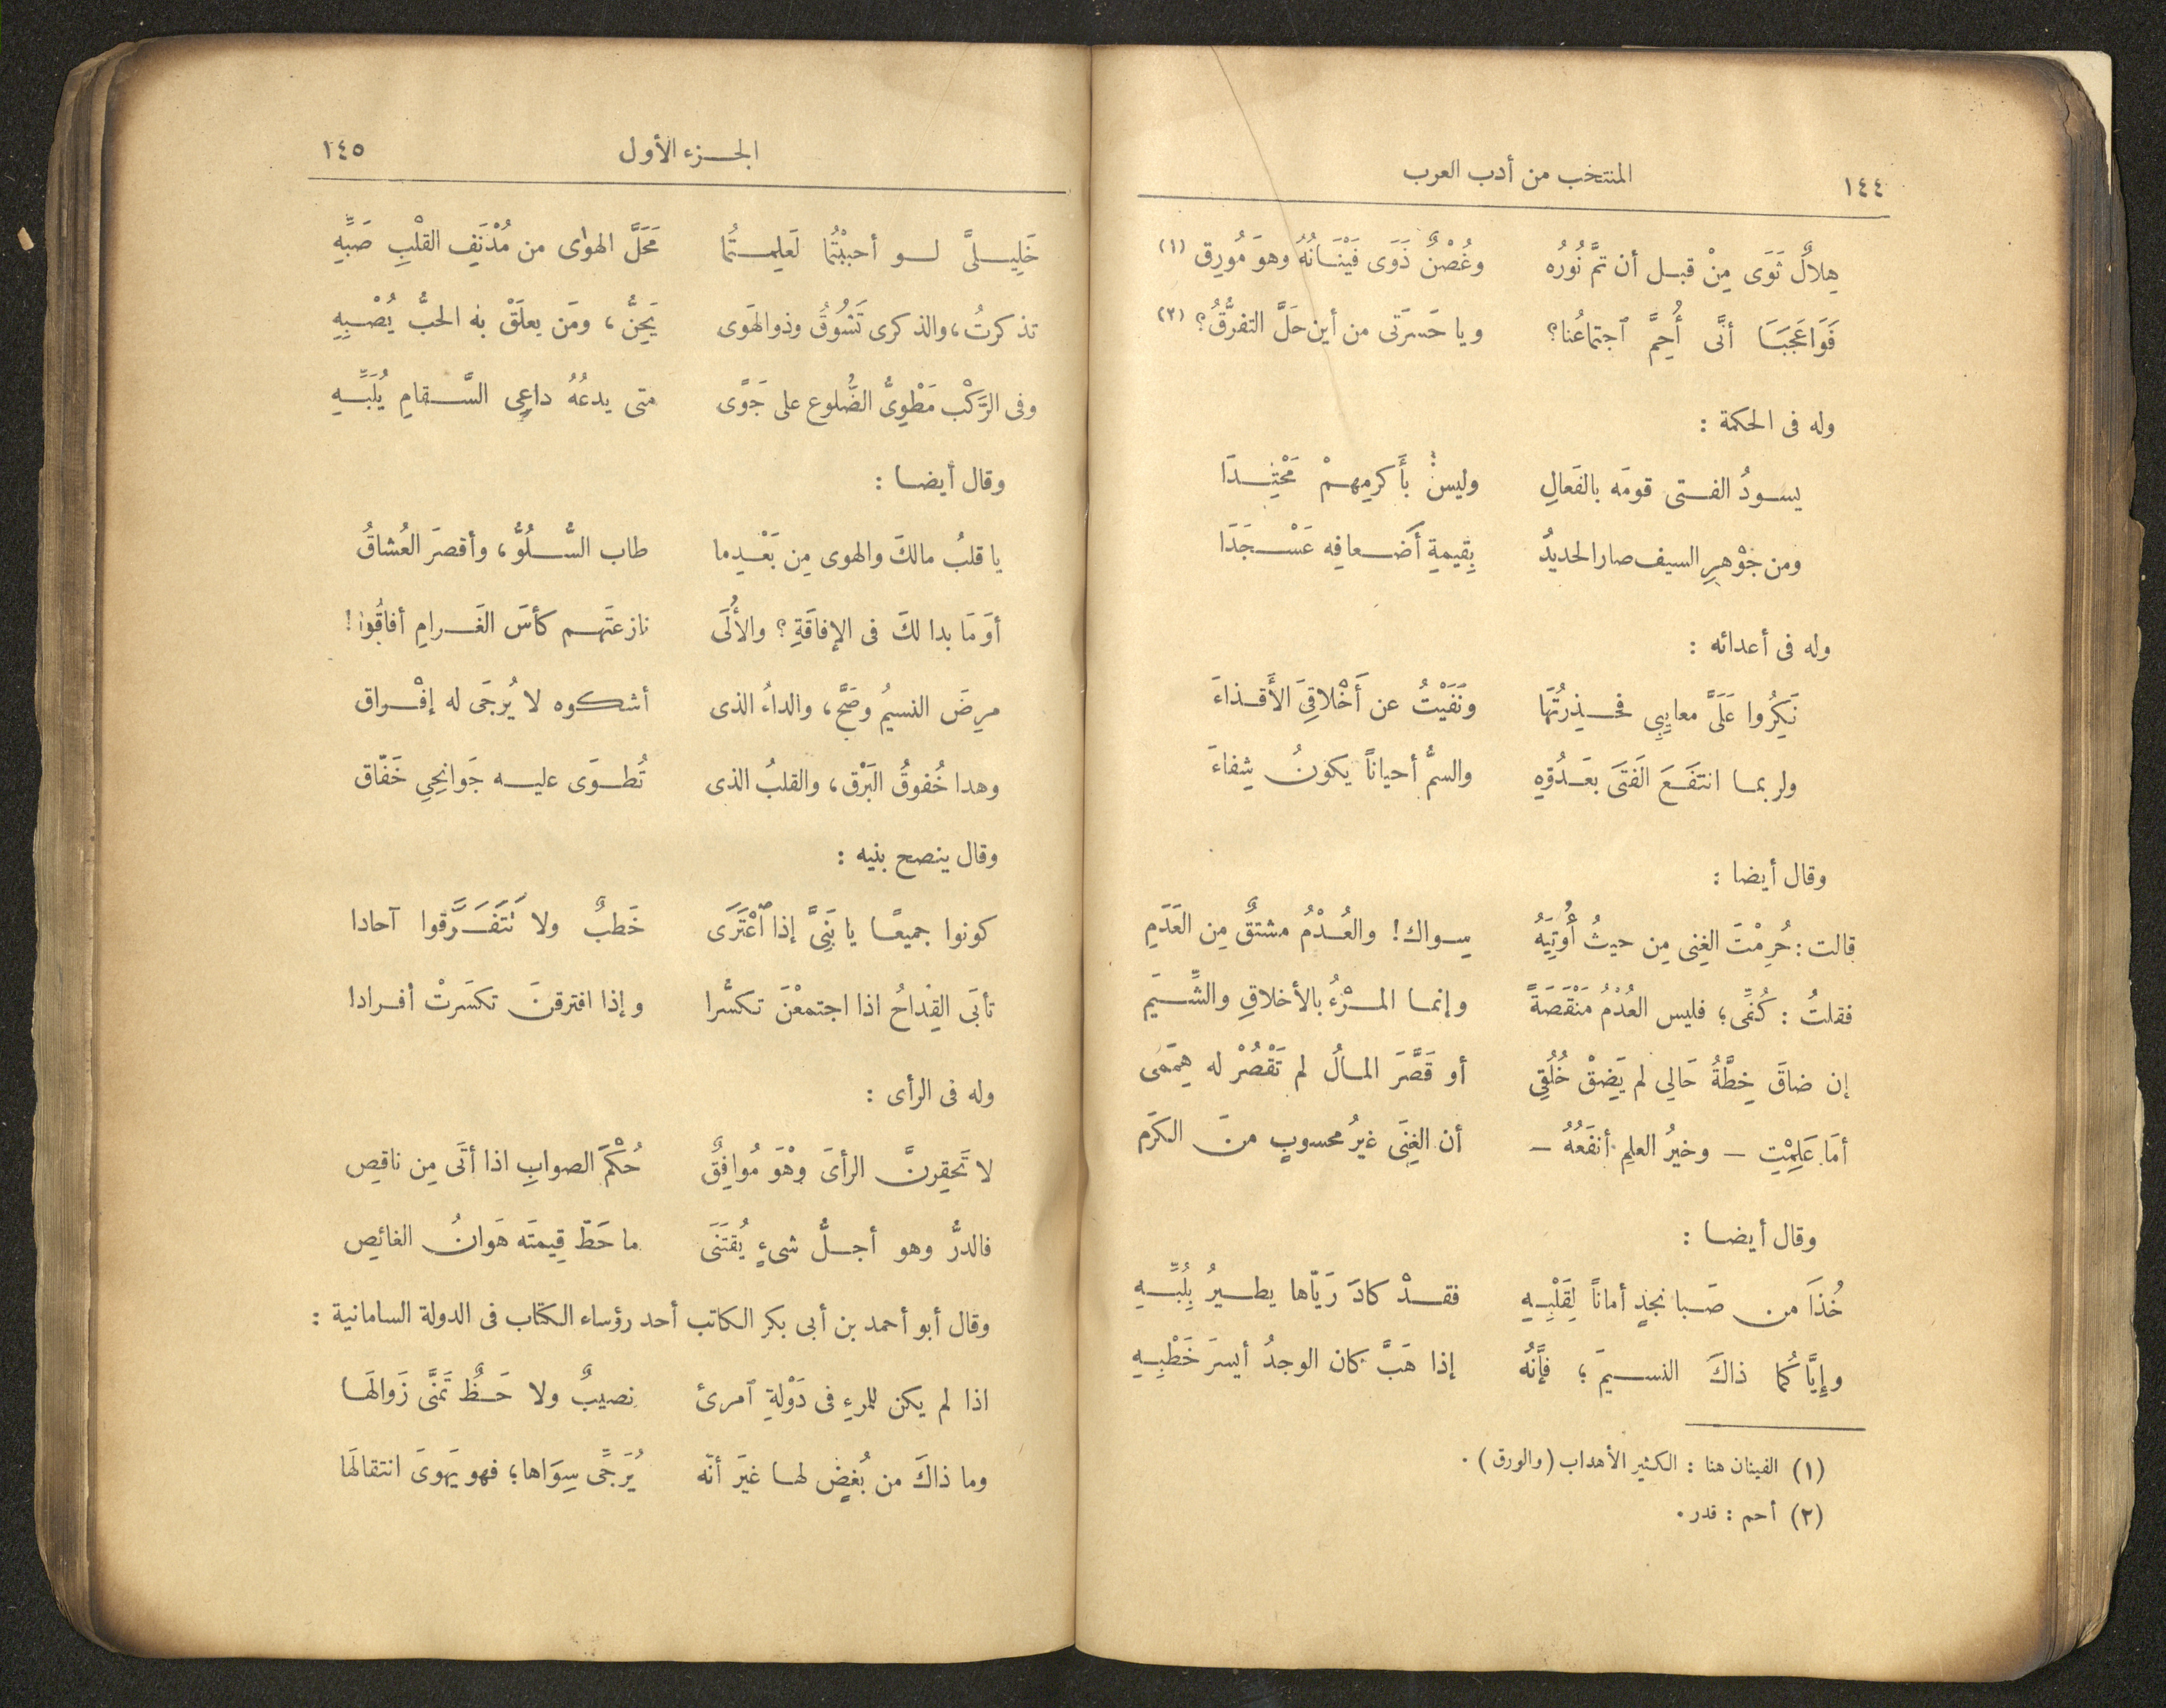 ١٤٤ المنتخب من أدب العرب
هِلالٌ ثَوَى مِنْ قبل أن تمَّ نُورُه وغُصْنٌ ذَوَى فَيْنَانُهُ وهوَ مُورِق (١)
فَوَاعَجَبَا أنَّى أُحِمَّ ٱجتماعُنا؟ ويا حَسرَتى من أين حَلَّ التفرُّقُ؟ (٢)
وله فى الحكمة :
يسودُ الفتى قومَه بالفَعالِ وليس بأَكرمِهمْ مَحْتِدَا
ومن جَوْهرِ السيف صار الحديدُ بِقيمةِ أَضعافِه عَسْجَدَا
وله فى أعدائه :
ذَكَرُوا عَلَىَّ معايِبِى فحذِرتُهَا ونَفَيْتُ عن أَخْلاقِىَ الأَقذاءَ
ولربما انتفَعَ الفَتَى بعَدُوِّهِ والسمُّ أحياناً يكونُ شِفاءَ
وقال أيضا :
قالت : حُرِمْتَ الغِنى مِن حيثُ أُوتِيَهُ سِواك! والعُدْمُ مشتقٌ مِن العَدَمِ
فقلتُ : كُفِّى؛ فليس العُدْمُ مَنْقَصَةً وإنما المرْءُ بالأخلاقِ والشِّيَم
إن ضاقَ خِطَّةُ حَالِى لم يَضِقْ خُلُقِى أو قَصَّرَ المالُ لم تَقْصُرْ له هِمَمَى
أمَا عَلِمْتِ — وخيرُ العلمِ أنفَعُهُ — أن الغِنَى غيرُ محسوبٍ منَ الكَرَم
وقال أيضا :
خُذَا من صَبا نجدٍ أماناً لِقَلْبِهِ فقدْ كادَ رَيّاها يطيرُ بِلُبِّهِ
وإِيَّاكُما ذاكَ النسيمَ؛ فإَنَّهُ إذا هَبَّ كان الوجدُ أيسرَ خَطْبِهِ
(١) الفينان هنا : الكثير الأهداب (والورق) .
(٢) أحم : قدر .
الجزء الأول ١٤٥
خَلِيلىَّ لو أحببْتُما لَعَلِمتُما مَحَلَّ الهوى من مُدْنَفِ القلْبِ صَبِّهِ
تذكرتُ، والذكرى تَشُوقُ وذو الهَوى يَحِنُّ، ومَن يعلَقْ به الحبُّ يُصْبِهِ
وفى الرَّكْب مَطْوِىُّ الضُّلوع على جَوًى متى يدعُهُ داعِى السَّقامِ يُلَبِّهِ
وقال أيضا :
يا قلبُ مالكَ والهوى مِن بَعْدِما طاب السُّلُوُّ، وأقصرَ العُشاقُ
أوَ مَا بدا لكَ فى الإفاقَةِ؟ والأُلَى نازعتَهم كأسَ الغَرامِ أفاقُوا!
مرِضَ النسيمُ وصَحَّ، والداءُ الذى أشكوه لا يُرجَى له إفْراق
وهدا خُفوقُ البَرْق، والقلبُ الذى تُطوَى عليه جَوانحِى خَفّاق
وقال ينصح بنيه :
كونوا جميعًا يا بَنِىَّ إذا ٱعْتَرَى خَطبٌ ولا تَتَفَرَّقوا آحادا
تأبَى القِداحُ اذا اجتمعْنَ تكسُّرا وإذا افترقنَ تكسَرتْ أفرادا
وله فى الرأى :
لا تَحقِرنَّ الرأىَ وهْوَ مُوافِقٌ حُكْمَ الصوابِ اذا أتَى مِن ناقصِ
فالدرُّ وهو أجلُّ شىءٍ يُقتَنَى ما حَطّ قِيمتَه هَوَانُ الغائصِ
وقال أبو أحمد بن أبى بكر الكاتب أحد رؤساء الكتاب فى الدولة السامانية :
اذا لم يكن للمرءِ فى دَوْلةِ ٱمرئ نصيبٌ ولا حَظٌّ تَمنَّى زَوالهَا
وما ذاكَ من بُغضٍ لها غيَر أنّه يُرَجَّى سِوَاها؛ فهو يَهوىَ انتقالهَا